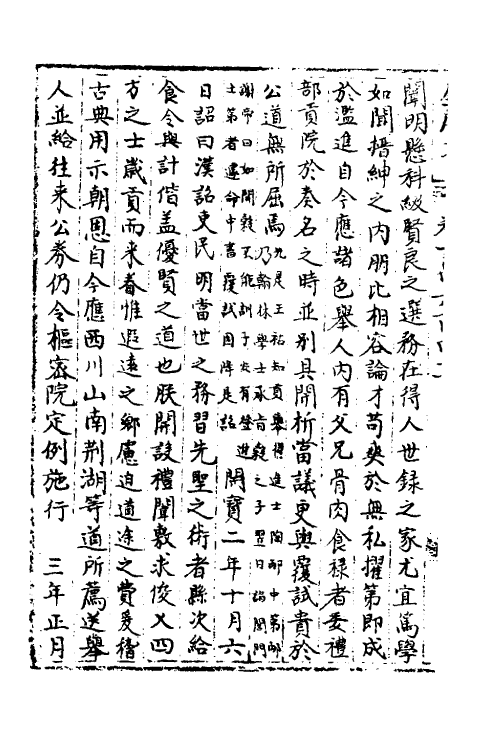 聞明懸科級賢良之選務在得人世録之家尤宜篤學
如聞搢紳之内朋比相容論才苟爽於無私擢第即成
於濫進自今應諸色舉人内有父兄骨肉食禄者委禮
部貢院於奏名之時並别具開析當議更與覆試貴於
公道無所屈焉先是王祐知貢舉得進士陶邴中第邴
乃翰林學士承旨穀之子翌日詣閤門
謝帝曰如聞穀不能訓子安有登進
士第者遽命中書覆試因降是詔開寶二年十月六
日詔曰漢詔吏民明當世之務習先聖之術者縣次給
食令與計偕盖優賢之道也朕開設禮闈敷求俊乂四
方之士歳貢而来眷惟遐遠之鄉慮迫道途之費爰稽
古典用示朝恩自今應西川山南荆湖等道所薦送舉
人並給往来公劵仍令樞宻院定例施行 三年正月